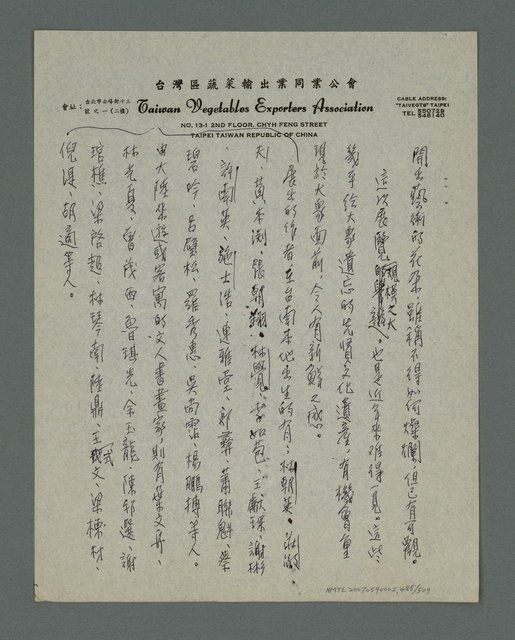 台灣區蔬菜輸出業同業公會
會址：台北市赤峰街十三號之一(二樓)
Taiwan Vegetables Exporters Association
NO. 13-1 2ND FLOOR, CHYH FENG STREET
TAIPEI TAIWAN REPUBLIC OF CHINA
CABLE ADDRESS:
"TAIVEGTS" TAIPEI
TEL 550729
548140
開出藝術的花朵，雖稱不得如何燦爛，但已有可觀。
這次展覽規模之大，也是近年來難得一見。這些，
幾乎給大衆遺忘的先賢文化遺產，有機會重
現於大衆面前，令人有新鮮之感。
展出的作者，在台南本地出生的有：林朝英、莊敬
夫、黃本淵、張朝翔、林覺、李如苞、王獻琛、謝彬
、許南英、施士浩、連雅堂、郭彝、蕭聯魁、蔡
碧吟、呂璧松、羅秀惠、吳尚霑、楊鵬摶等人。
由大陸來遊或客寓的文人書畫家，則有葉文舟、
林老夏、曾茂西、呂琪光、余玉龍、陳邦選、謝
琯樵、梁啓超、林琴南、陸鼎、王式文、梁棟材、
倪湜、胡適等人。
NMTL20070590002,485/509